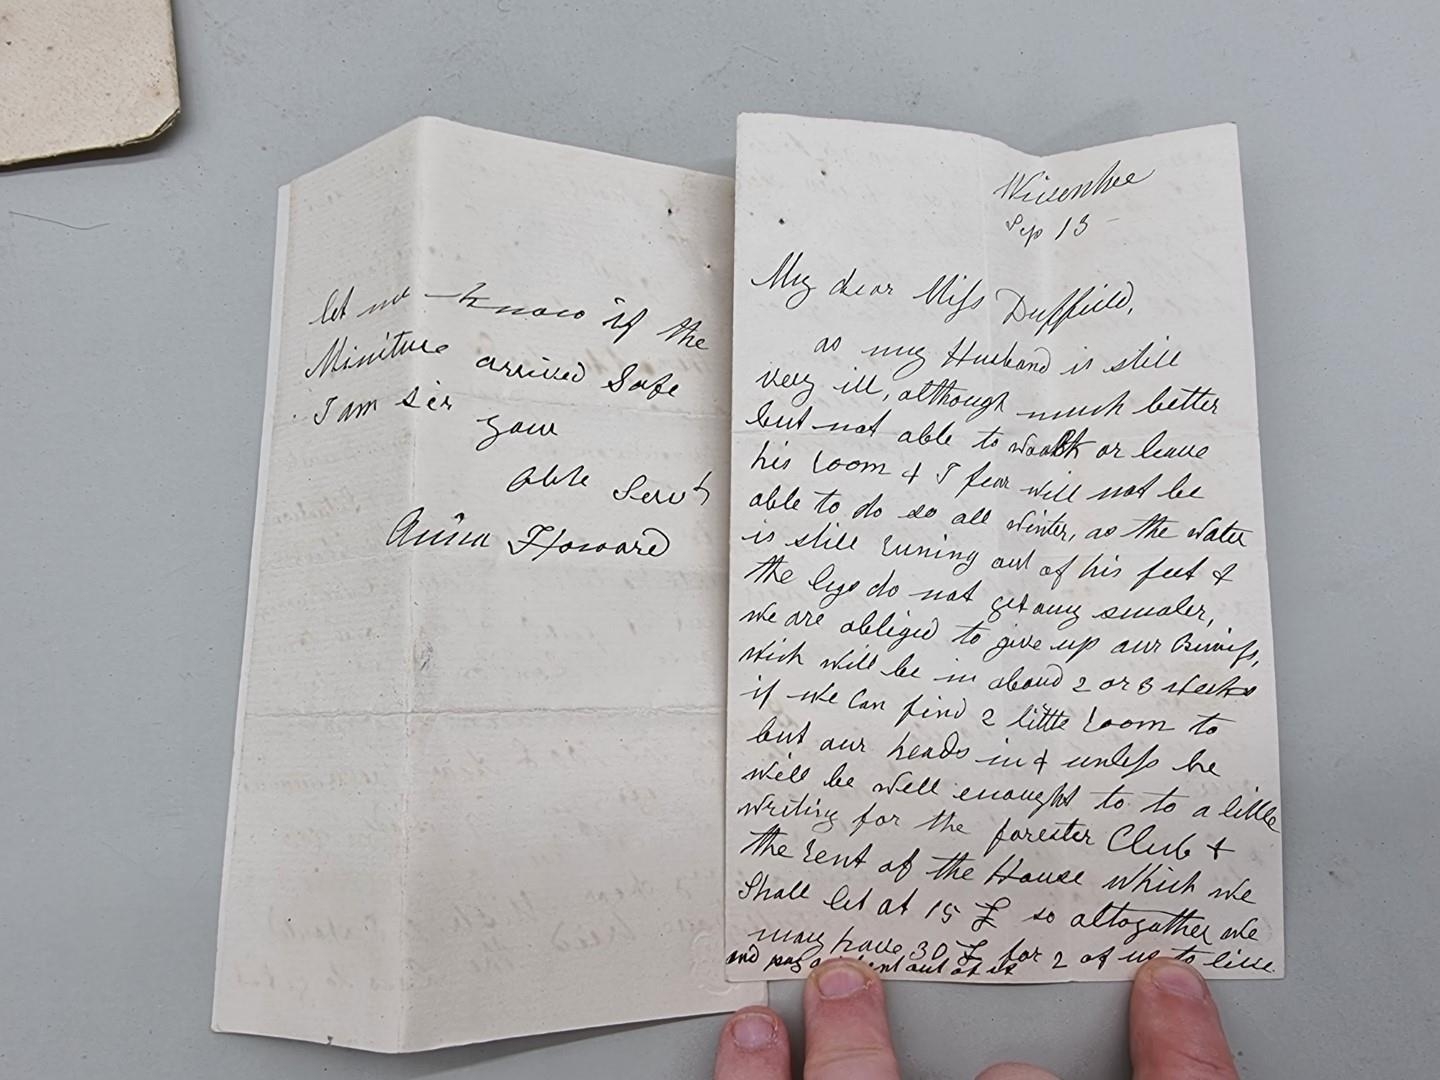 let me know if the
Miniture arrived Safe
I am Sir
your
obte Servt
Anna Howard
Sep 13
My dear Miss Duffield,
as my Husband is still
very ill, although much better
but not able to walk or leave
his room & I fear will not be
able to do so all winter, as the water
is still runing out of his feet &
the legs do not get any smaler,
we are obliged to give up our
wich will be in aboud 2 or 3 weeks
if we can find 2 little room to
but our heads in & unless he
will be well enought to to a little
writing for the forester Club &
the rent of the House which we
Shall let at 15 £ so altogather we
may have 30 £ for 2 of us to live
and pay out of it